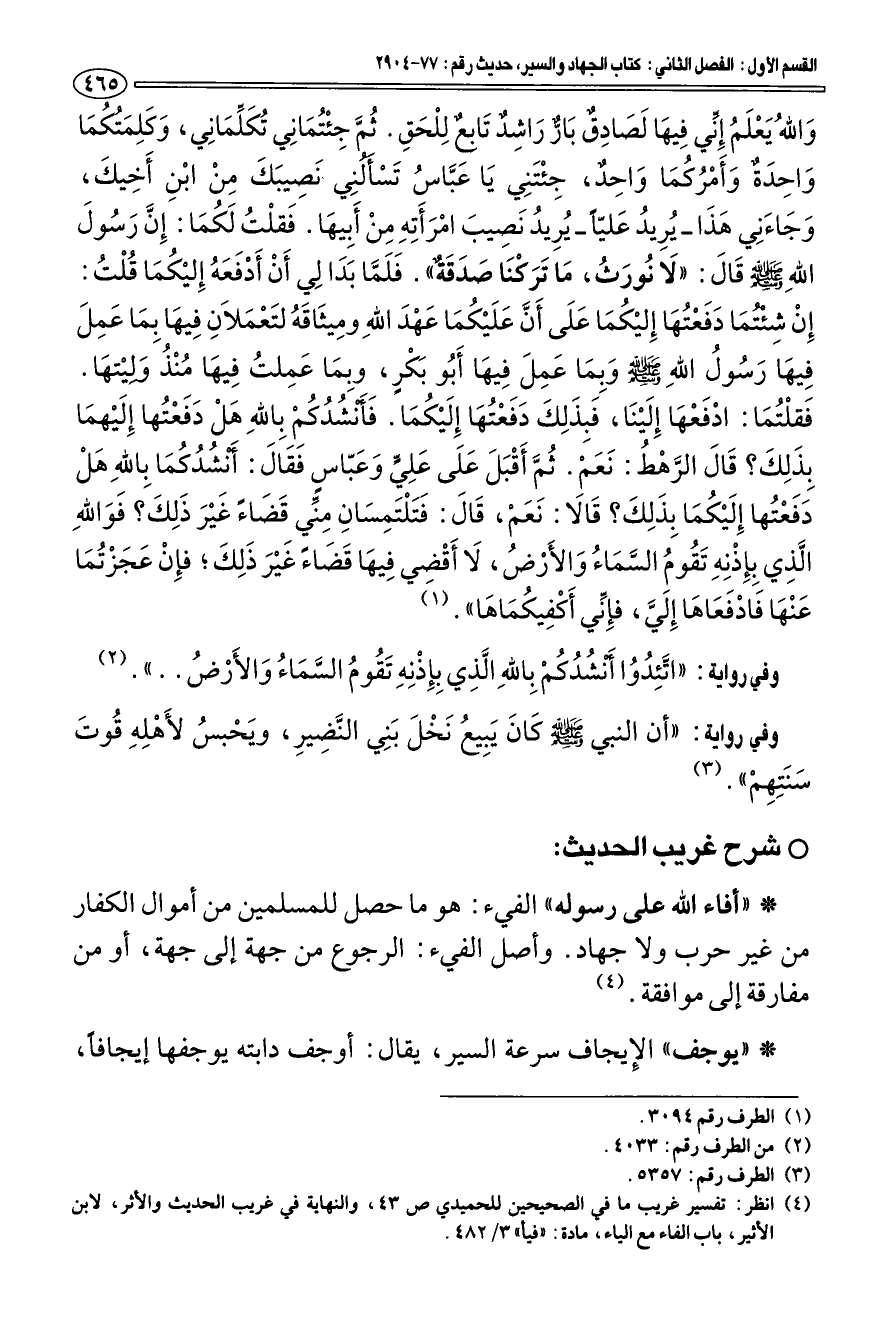 القسم الأول: الفصل الثاني: كتاب الجهاد والسير، حديث رقم: ٧٧-٢٩٠٤
٤٦٥
وَاللهُ يَعْلَمُ إِنِّي فِيهَا لَصَادِقٌ بَارٌّ رَاشِدٌ تَابِعٌ لِلْحَقِ. ثُمَّ جِئْتُمَانِي تُكَلِّمَانِي، وَكَلِمَتُكُمَا
وَاحِدَةٌ وَأَمْرُكُمَا وَاحِدٌ، جِئْتَنِي يَا عَبَّاسُ تَسْأَلُنِي نَصِيبَكَ مِنْ ابْنِ أَخِيكَ،
وَجَاءَنِي هَذَا ـ يُرِيدُ عَليّاً ـ يُرِيدُ نَصِيبَ امْرَأَتِهِ مِنْ أَبِيهَا. فَقلْتُ لَكُمَا: إِنَّ رَسُولَ
اللهِ ﷺ قَالَ: «لَا نُورَثُ، مَا تَرَكْنَا صَدَقَةٌ». فَلَمَّا بَدَا لِي أَنْ أَدْفَعَهُ إِلَيْكُمَا قُلْتُ:
إِنْ شِئْتُمَا دَفَعْتُهَا إِلَيْكُمَا عَلَى أَنَّ عَلَيْكُمَا عَهْدَ اللهِ ومِيثَاقَهُ لتَعْمَلاَنِ فِيهَا بِمَا عَمِلَ
فِيهَا رَسُولُ اللهِ ﷺ وَبِمَا عَمِلَ فِيهَا أَبُو بَكْرٍ، وبِمَا عَمِلتُ فِيهَا مُنْذُ وَلِيْتهَا.
فَقلْتُمَا: ادْفَعْهَا إِلَيْنَا، فَبِذَلِكَ دَفَعْتُهَا إِلَيْكُمَا. فَأَنْشُدُكُمْ بِاللهِ هَلْ دَفَعْتُها إِلَيْهِمَا
بِذَلِكَ؟ قَالَ الرَّهْطُ: نَعَمْ. ثُمَّ أَقْبَلَ عَلَى عَلِيٍّ وَعَبَّاسٍ فَقَالَ: أَنْشُدُكُمَا بِاللهِ هَلْ
دَفَعْتُها إِلَيْكُمَا بِذَلِكَ؟ قَالَا: نَعَمْ، قَالَ: فَتَلْتَمِسَانِ مِنِّي قَضَاءً غَيْرَ ذَلِكَ؟ فَوَاللهِ
الَّذِي بِإِذْنِهِ تَقُومُ السَّمَاءُ وَالأَرْضُ، لَا أَقْضِي فِيهَا قَضَاءً غَيْرَ ذَلِكَ؛ فإِنْ عَجَزْتُمَا
عَنْهَا فَادْفَعَاهَا إِلَيَّ، فإِنِّي أَكْفِيكُمَاهَا». (١)
وفي رواية: «اتَّئِدُوا أَنْشُدُكُمْ بِاللهِ الَّذِي بِإِذْنِهِ تَقُومُ السَّمَاءُ وَالأَرْضُ. .». (٢)
وفي رواية: «أن النبي ﷺ كَانَ يَبِيعُ نَخْلَ بَنِي النَّضِيرِ، ويَحْبسُ لأَهْلِهِ قُوتَ
سَنَتِهِمْ». (٣)
○ شرح غريب الحديث:
* «أفاء الله على رسوله» الفيء: هو ما حصل للمسلمين من أموال الكفار
من غير حرب ولا جهاد. وأصل الفيء: الرجوع من جهة إلى جهة، أو من
مفارقة إلى موافقة. (٤)
* «يوجف» الإيجاف سرعة السير، يقال: أوجف دابته يوجفها إيجافاً،
(١) الطرف رقم ٣٠٩٤.
(٢) من الطرف رقم: ٤٠٣٣.
(٣) الطرف رقم: ٥٣٥٧.
(٤) انظر: تفسير غريب ما في الصحيحين للحميدي ص ٤٣، والنهاية في غريب الحديث والأثر، لابن
الأثير، باب الفاء مع الياء، مادة: «فيأ» ٣/ ٤٨٢.